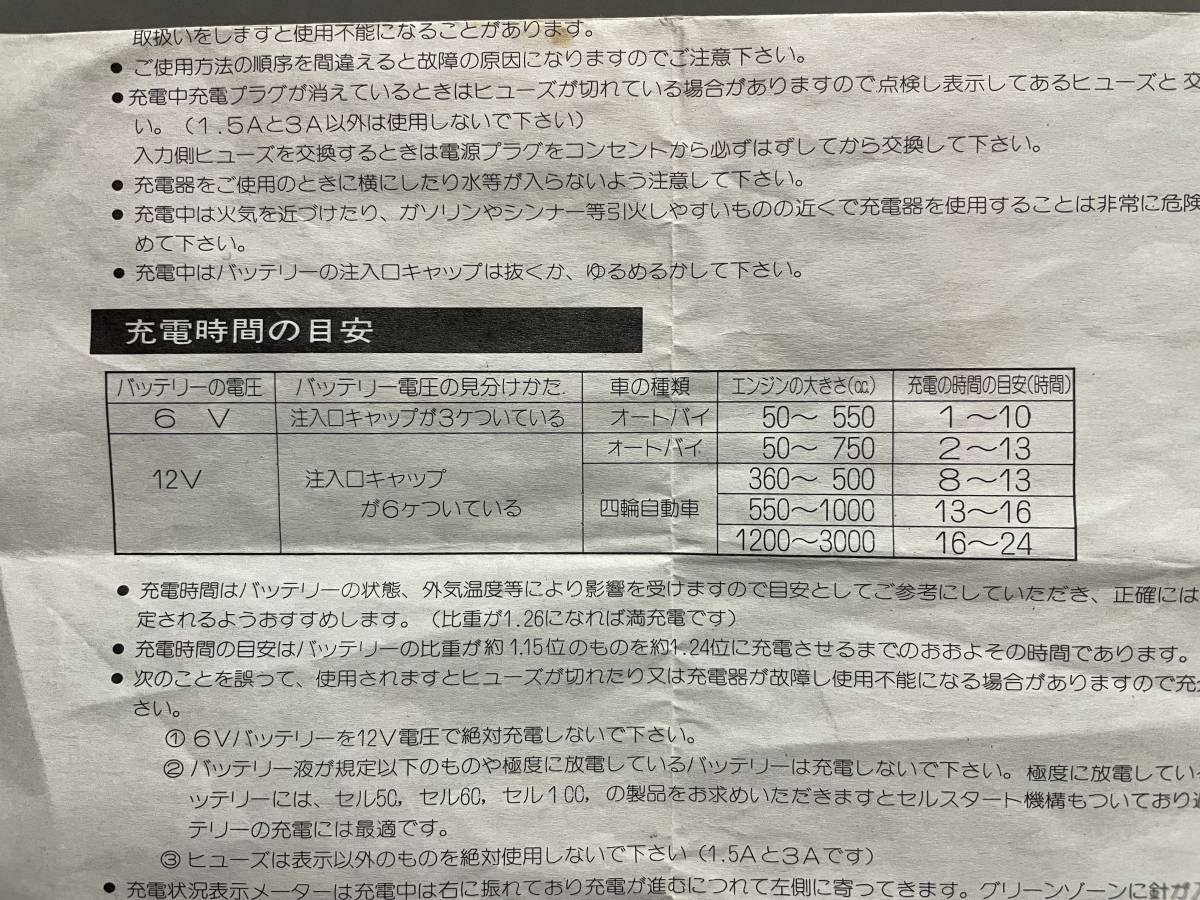 取扱いをしますと使用不能になることがあります。
● ご使用方法の順序を間違えると故障の原因になりますのでご注意下さい。
● 充電中充電プラグが消えているときはヒューズが切れている場合がありますので点検し表示してあるヒューズと交
い。（1.5Aと3A以外は使用しないで下さい）
入力側ヒューズを交換するときは電源プラグをコンセントから必ずはずしてから交換して下さい。
● 充電器をご使用のときに横にしたり水等が入らないよう注意して下さい。
● 充電中は火気を近づけたり、ガソリンやシンナー等引火しやすいものの近くで充電器を使用することは非常に危険
めて下さい。
● 充電中はバッテリーの注入口キャップは抜くか、ゆるめるかして下さい。
充電時間の目安
バッテリーの電圧 バッテリー電圧の見分けかた. 車の種類 エンジンの大きさ(cc) 充電の時間の目安(時間)
6 V 注入口キャップが3ケついている オートバイ 50〜 550 1〜10
オートバイ 50〜 750 2〜13
12V 注入口キャップ 360〜 500 8〜13
が6ヶついている 四輪自動車 550〜1000 13〜16
1200〜3000 16〜24
● 充電時間はバッテリーの状態、外気温度等により影響を受けますので目安としてご参考にしていただき、正確には
定されるようおすすめします。（比重が1.26になれば満充電です）
● 充電時間の目安はバッテリーの比重が約1.15位のものを約1.24位に充電させるまでのおおよその時間であります。
● 次のことを誤って、使用されますとヒューズが切れたり又は充電器が故障し使用不能になる場合がありますので充分
さい。
① 6Vバッテリーを12V電圧で絶対充電しないで下さい。
② バッテリー液が規定以下のものや極度に放電しているバッテリーは充電しないで下さい。極度に放電してい
ッテリーには、セル50，セル60，セル100，の製品をお求めいただきますとセルスタート機構もついており過
テリーの充電には最適です。
③ ヒューズは表示以外のものを絶対使用しないで下さい（1.5Aと3Aです）
● 充電状況表示メーターは充電中は右に振れており充電が進むにつれて左側に寄ってきます。グリーンゾーンに針が